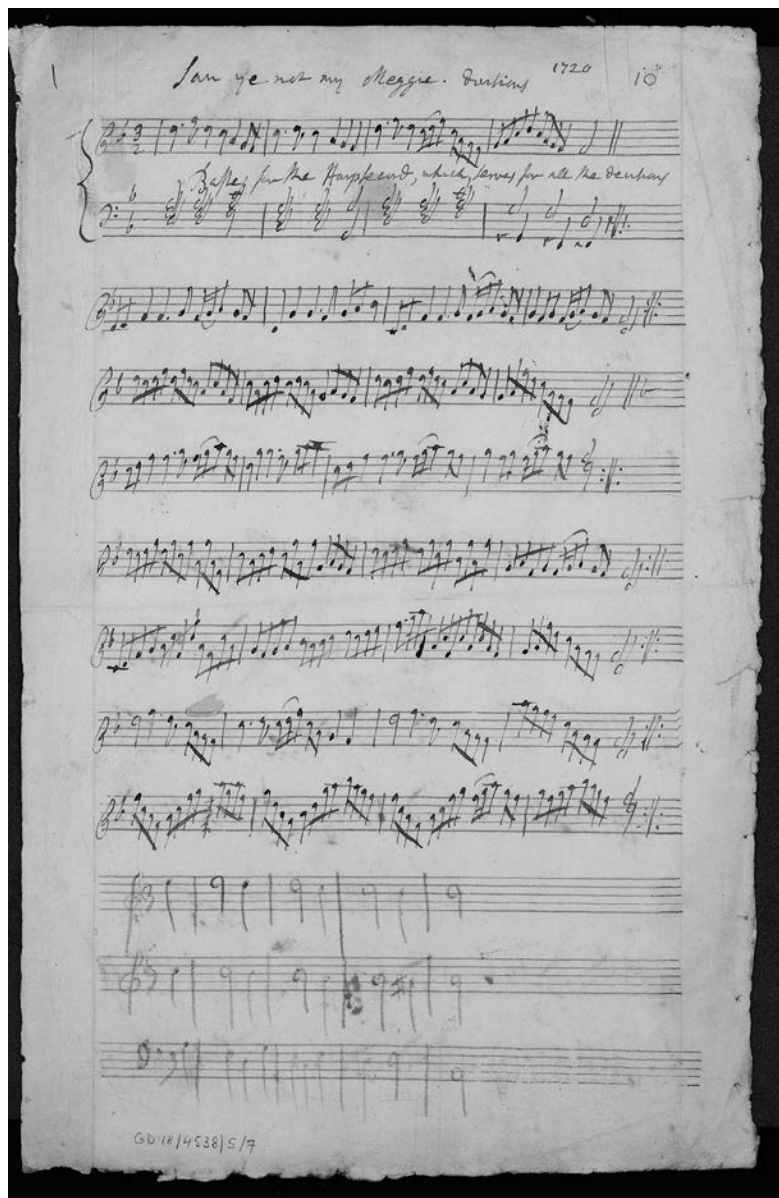 1 Saw ye not my Meggie. 1720 10
Basses for the Harpsecord, which serves for all the
GD 18/4538/5/7